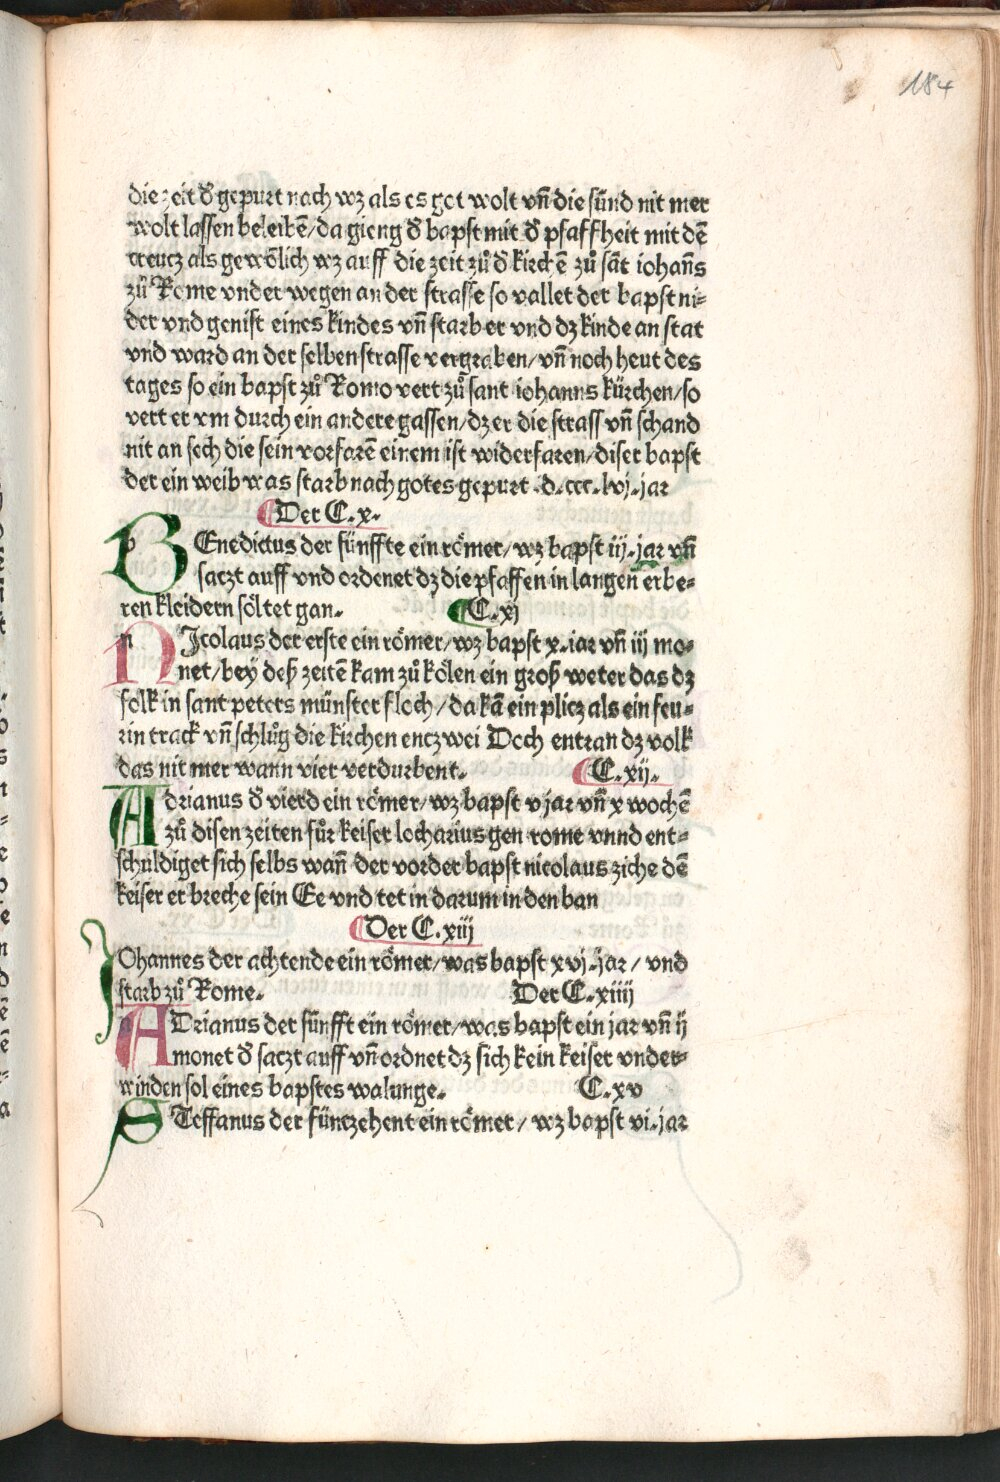 184
die zeit ð gepurt nach wz als es got wolt vñ die sünd nit mer
wolt lassen beleibē/da gieng ð bapst mit ð pfaffheit mit dē
creucz als gewōlich wz auff die zeit zů ð kirchē zů sāt iohañs
zů Rome vnder wegen an der strasse so vallet der bapst ni⸗
der vnd genist eines kindes vñ starb er vnd dz kinde an stat
vnd ward an der selben strasse vergraben/vñ noch heut des
tages so ein bapst zů Romo vert zů sant iohanns kürchen/so
vert er vm durch ein andere gassen/dz er die strass vñ schand
nit an sech die sein vorfarē einem ist widerfaren/diser bapst
der ein weib was starb nach gotes gepurt .d.ccc.lvj.jar
Der C.x.
BEnedictus der fünffte ein römer/wz bapst iij.jar vñ
saczt auff vnd ordenet dz die pfaffen in langen erbe⸗
ren kleidern söltet gan. C.xj
NJcolaus der erste ein römer/wz bapst x.iar vñ iij mo⸗
net/bey deß zeitē kam zů kölen ein groß weter das dz
folk in sant peters münster floch/da kā ein plicz als ein feu⸗
rin track vñ schlůg die kirchen enczwei Doch entran dz volk
das nit mer wann vier verdurbent. C.xij.
Adrianus ð vierd ein römer/wz bapst v jar vñ x wochē
zů disen zeiten fůr keiser locharius gen rome vnnd ent⸗
schuldiget sich selbs wañ der vorder bapst nicolaus ziche dē
keiser er breche sein Ee vnd tet in darum in den ban
Der C.xiij
JOhannes der achtende ein römer/was bapst xvj.jar/vnd
starb zů Rome. Der C.xiiij
ADrianus der fünfft ein römer/was bapst ein jar vñ ij
monet ð saczt auff vñ ordnet dz sich kein keiser vnder⸗
winden sol eines bapstes walunge. C.xv
STeffanus der fünczehent ein römer/wz bapst vi.jar